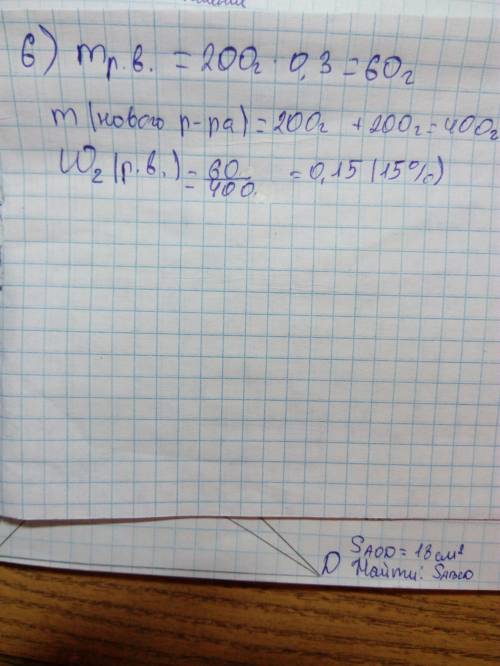 6) mр.в. = 200г · 0,3 = 60г
m (нового р-ра) = 200г + 200г = 400г
W₂ (р.в.) = 60/400 = 0,15 (15%)
D
SAOD = 18 см²
Найти: SABCD